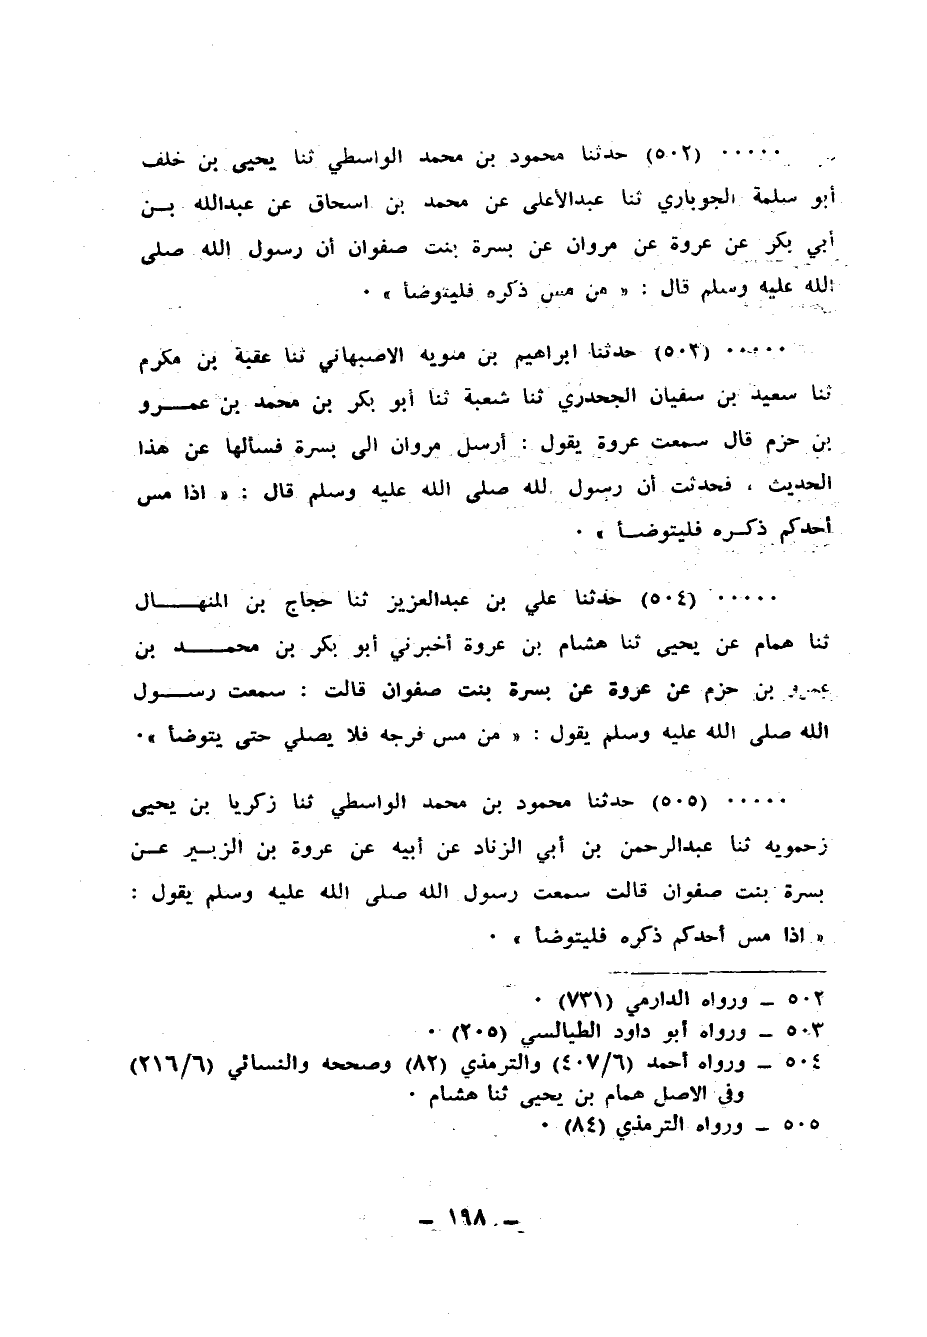 ٠٠٠٠٠ (٥٠٢) حدثنا محمود بن محمد الواسطي ثنا يحيى بن خلف
أبو سلمة الجوباري ثنا عبدالأعلى عن محمد بن اسحاق عن عبدالله بـن
أبي بكر عن عروة عن مروان عن بسرة بنت صفوان أن رسول الله صلى
الله عليه وسلم قال : « من مس ذكره فليتوضأ » ٠
٠٠٠٠٠ (٥٠٣) حدثنا ابراهيم بن متويه الاصبهاني ثنا عقبة بن مكرم
ثنا سعيد بن سفيان الجحدري ثنا شعبة ثنا أبو بكر بن محمد بن عمـــرو
بن حزم قال سمعت عروة يقول : أرسل مروان الى بسرة فسألها عن هذا
الحديث ، فحدثت أن رسول الله صلى الله عليه وسلم قال : « اذا مس
أحدكم ذكـره فليتوضــأ » ٠
٠٠٠٠٠ (٥٠٤) حدثنا علي بن عبدالعزيز ثنا حجاج بن المنهـــــال
ثنا همام عن يحيى ثنا هشام بن عروة أخبرني أبو بكر بن محمـــــد بن
عمرو بن حزم عن عروة عن بسرة بنت صفوان قالت : سمعت رســـول
الله صلى الله عليه وسلم يقول : « من مس فرجه فلا يصلي حتى يتوضأ »٠
٠٠٠٠٠ (٥٠٥) حدثنا محمود بن محمد الواسطي ثنا زكريا بن يحيى
زحمويه ثنا عبدالرحمن بن أبي الزناد عن أبيه عن عروة بن الزبـير عـن
بسرة بنت صفوان قالت سمعت رسول الله صلى الله عليه وسلم يقول :
« اذا مس أحدكم ذكره فليتوضأ » ٠
٥٠٢ ــ ورواه الدارمي (٧٣١) ٠
٥٠٣ ــ ورواه أبو داود الطيالسي (٢٠٥) ٠
٥٠٤ ــ ورواه أحمد (٤٠٧/٦) والترمذي (٨٢) وصححه والنسائي (٢١٦/٦)
وفى الاصل همام بن يحيى ثنا هشام ٠
٥٠٥ ــ ورواه الترمذي (٨٤) ٠
ــ ١٩٨ ــ